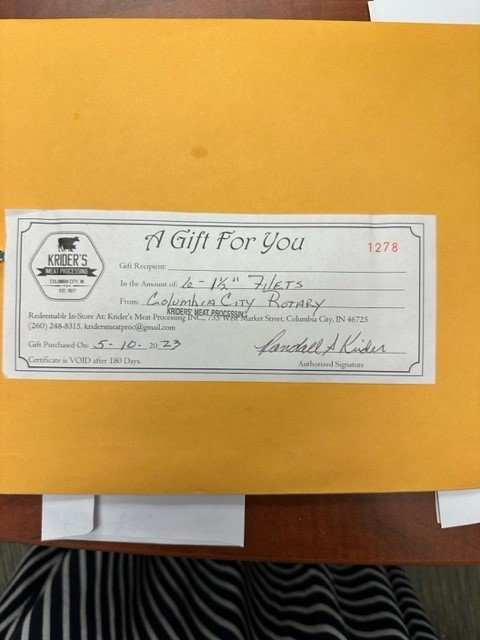 A Gift For You
1278
KRIDER'S
MEAT PROCESSING
COLUMBIA CITY, IN
EST. 1977
Gift Recipient:
In the Amount of: 6 - 1½" FilETS
From: Columbia City Rotary
KRIDERS' MEAT PROCESSING
Redeemable In-Store At: Krider's Meat Processing INC., 735 West Market Street, Columbia City, IN 46725
(260) 248-8315. kridersmeatproc@gmail.com
Gift Purchased On: 5-10- 2023
Randall S Krider
Certificate is VOID after 180 Days.
Authorized Signature